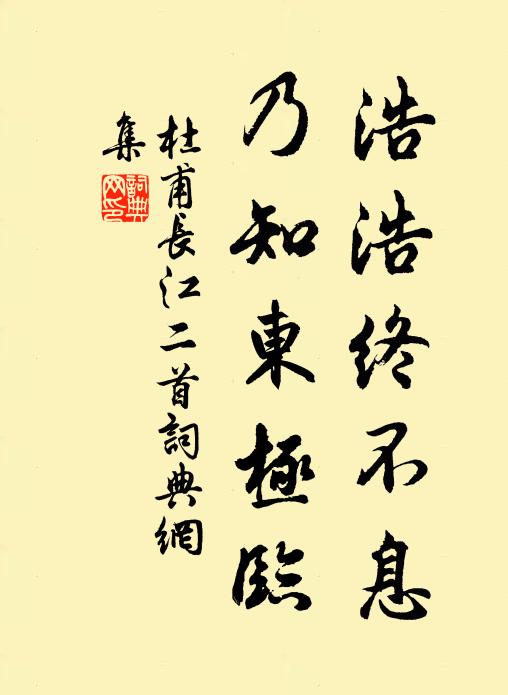 浩浩終不息
乃知東極臨
杜甫長江二首詞典網
集
詞典
网印